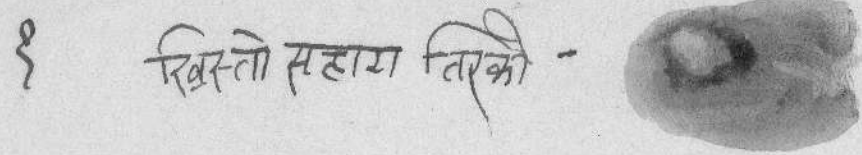 १ खिस्तो सहारा तिरको -